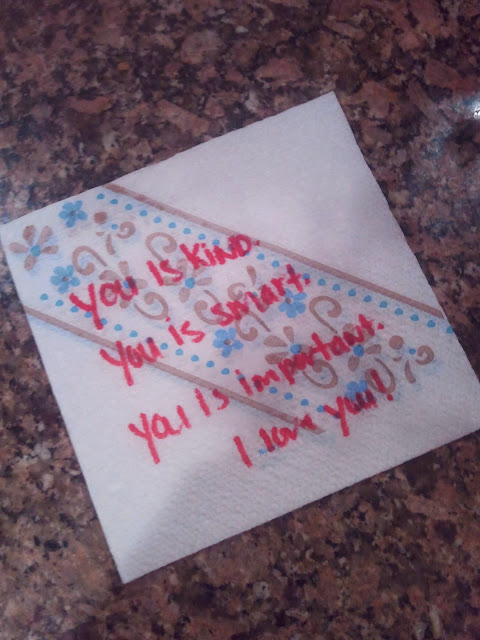 You is kind.
You is smart.
You is important.
I love you!